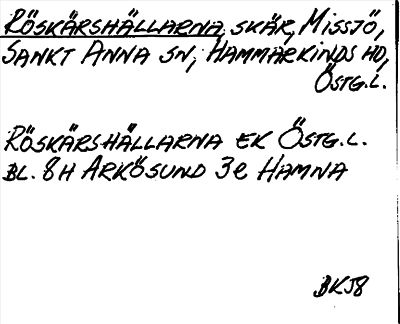 RÖSKÄRSHÄLLARNA, SKÄR, MISSJÖ,
SANKT ANNA SN, HAMMARKINDS HD,
ÖSTG.L.
RÖSKÄRSHÄLLARNA EK ÖSTG.L.
BL. 8H ARKÖSUND 3e HAMNA
BKJ8